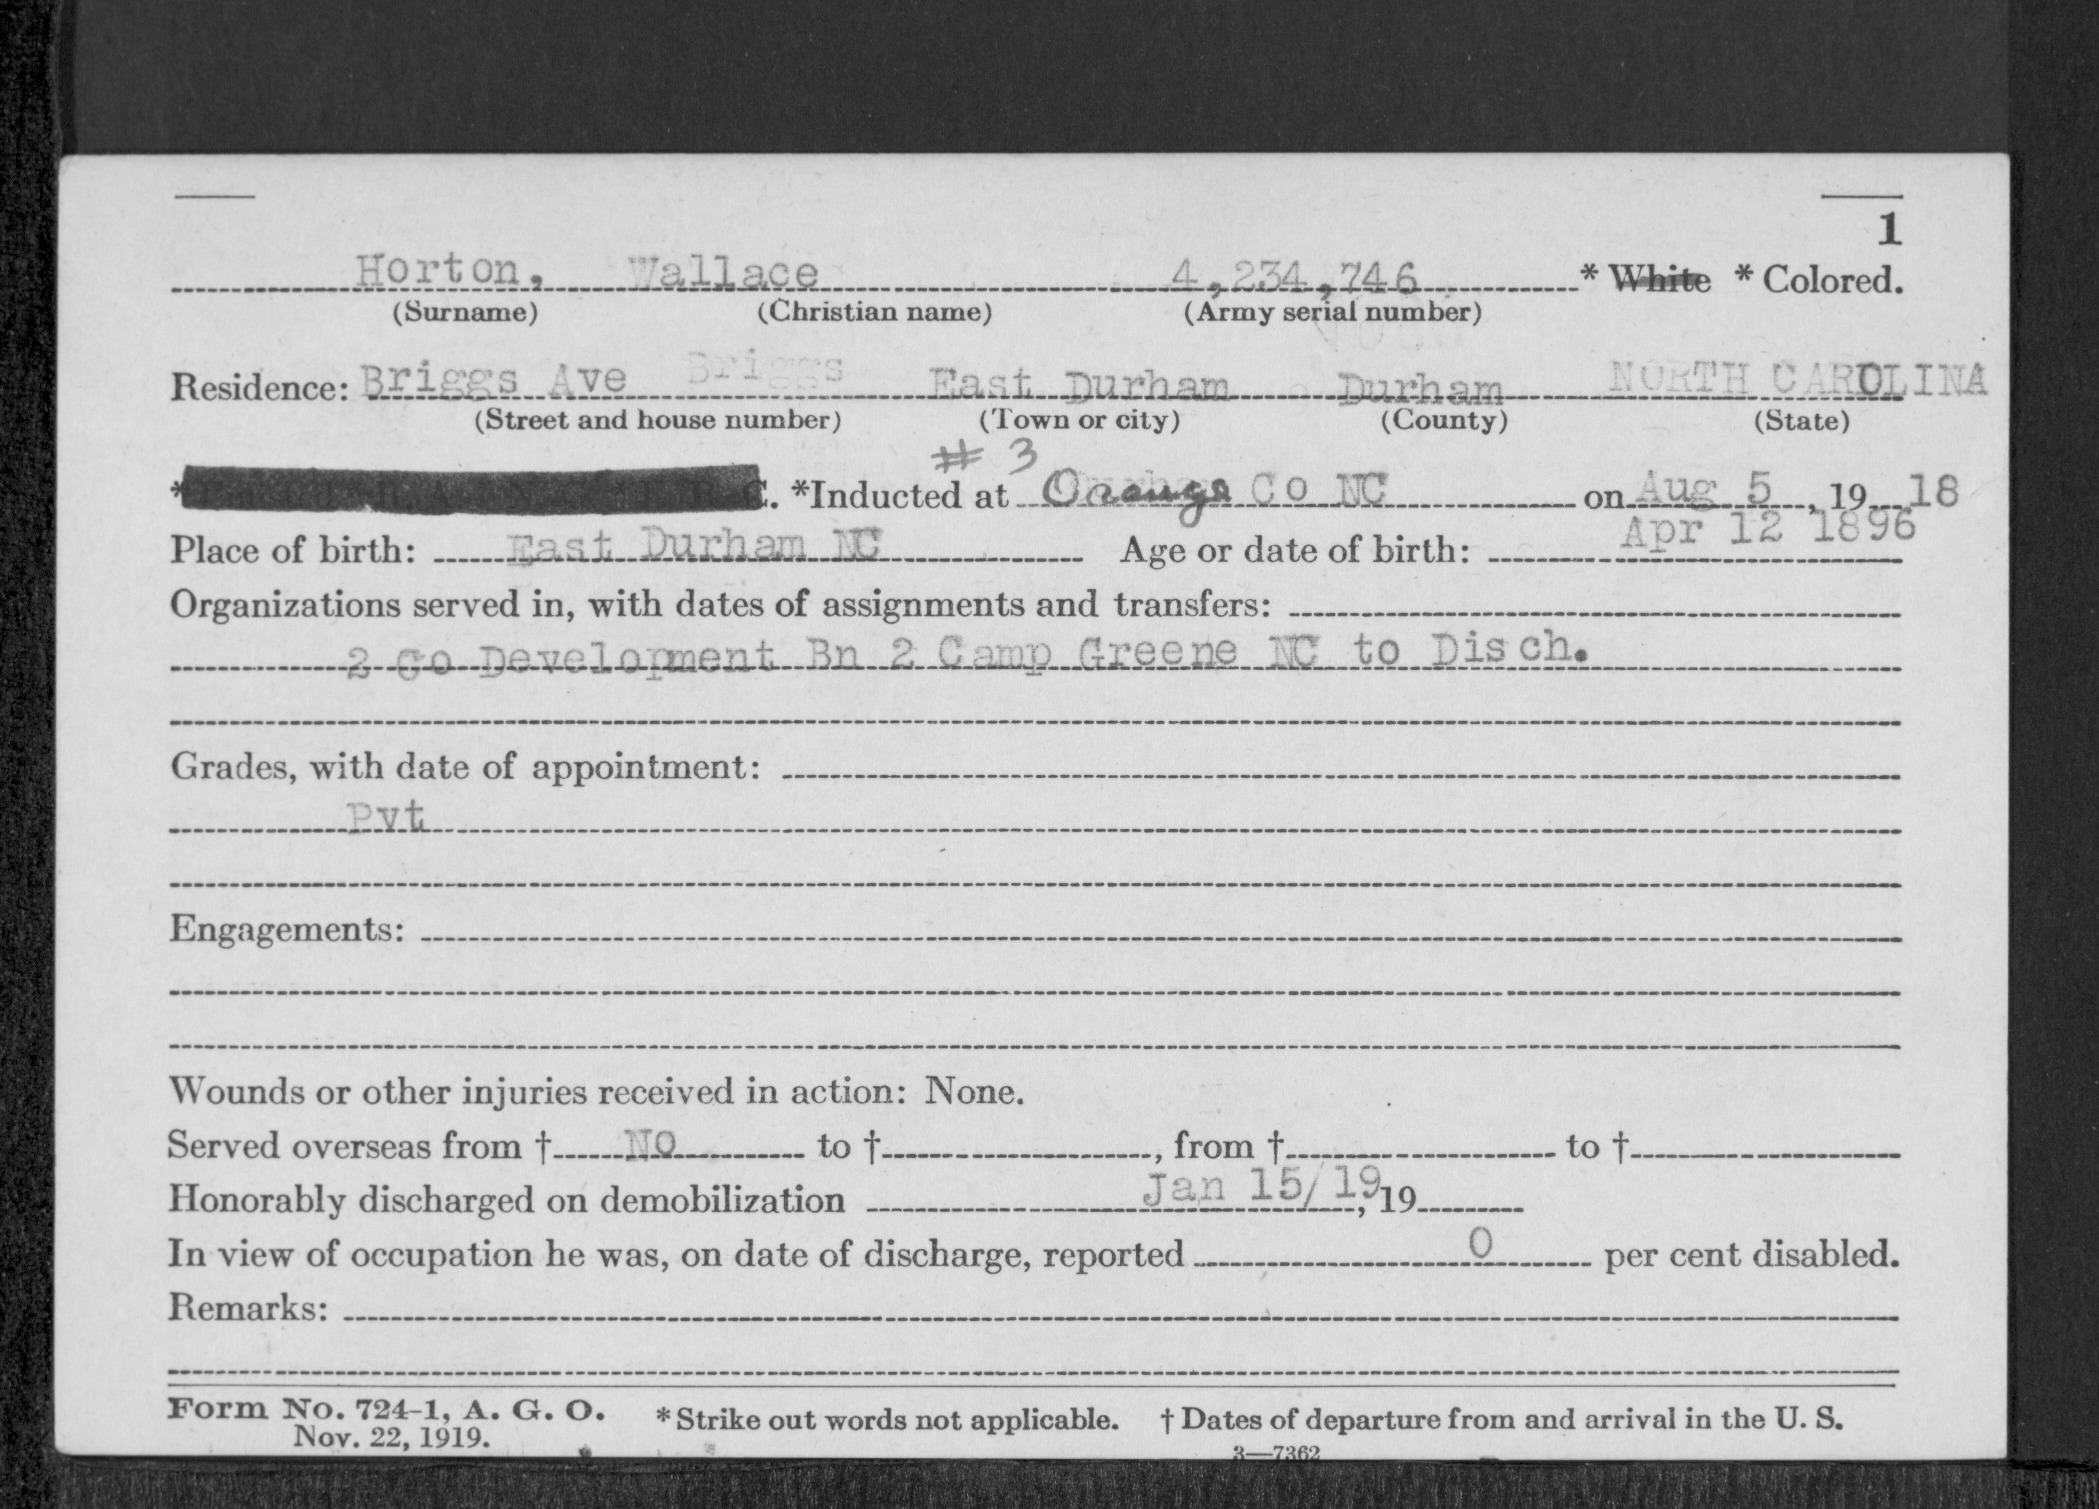 1
Horton, Wallace 4,234,746 * White * Colored.
(Surname) (Christian name) (Army serial number)
Residence: Briggs Ave Briggs East Durham Durham NORTH CAROLINA
(Street and house number) (Town or city) (County) (State)
# 3
* C. *Inducted at Orange Co NC on Aug 5, 19 18
Place of birth: East Durham NC Age or date of birth: Apr 12 1896
Organizations served in, with dates of assignments and transfers:
2 Co Development Bn 2 Camp Greene NC to Disch.
Grades, with date of appointment:
Pvt
Engagements:
Wounds or other injuries received in action: None.
Served overseas from † No to †, from † to †
Honorably discharged on demobilization Jan 15/19, 19
In view of occupation he was, on date of discharge, reported 0 per cent disabled.
Remarks:
Form No. 724-1, A. G. O. * Strike out words not applicable. † Dates of departure from and arrival in the U. S.
Nov. 22, 1919.
3—7362